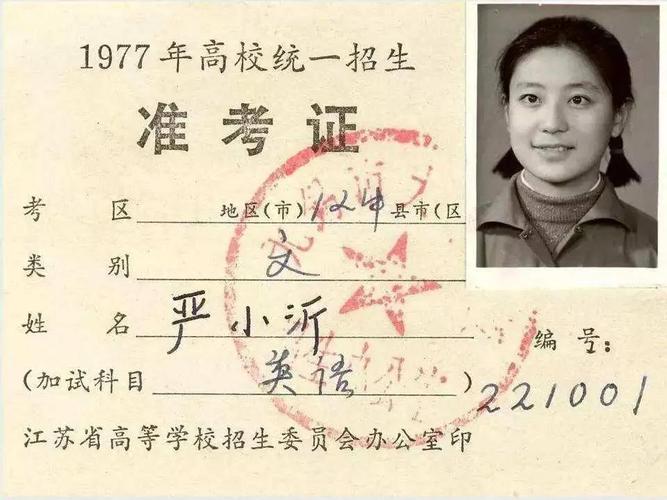 1977年高校统一招生
准考证
考 区 地区(市) 12中 县市(区
类 别 文
姓 名 严小沂
(加试科目 英语 )
编号:
221001
江苏省高等学校招生委员会办公室印